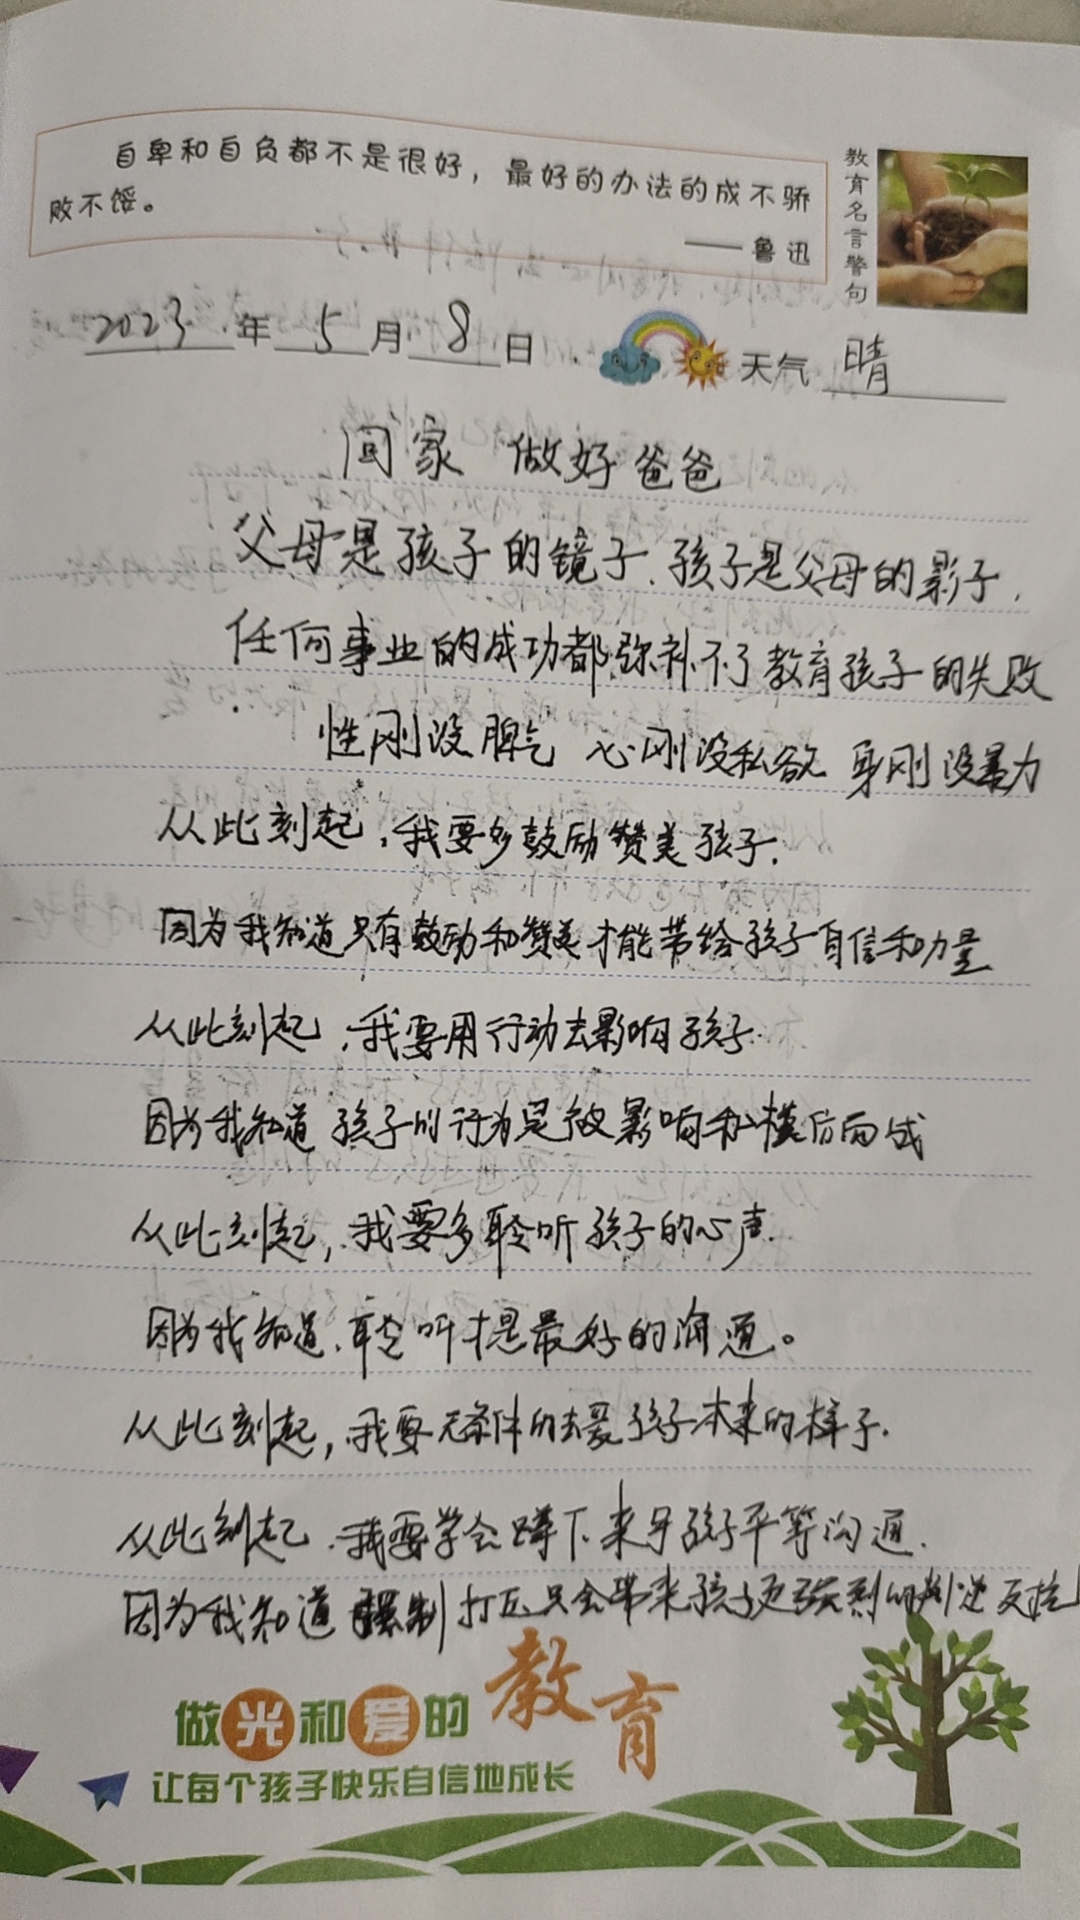 自卑和自负都不是很好，最好的办法的成不骄
败不馁。
——鲁迅
教育名言警句
2023年5月8日 天气 晴
回家 做好爸爸
父母是孩子的镜子.孩子是父母的影子.
任何事业的成功都弥补不了教育孩子的失败
性刚没脾气 心刚没私欲 身刚没暴力
从此刻起,我要多鼓励赞美孩子.
因为我知道只有鼓励和赞美才能带给孩子自信和力量
从此刻起,我要用行动去影响孩子.
因为我知道 孩子的行为是被影响和模仿而成
从此刻起,我要多聆听孩子的心声.
因为我知道,聆听才是最好的沟通。
从此刻起,我要无条件的去爱孩子本来的样子.
从此刻起.我要学会蹲下来与孩子平等沟通.
因为我知道 强制打压只会带来孩子更强烈的叛逆反抗
做光和爱的教育
让每个孩子快乐自信地成长